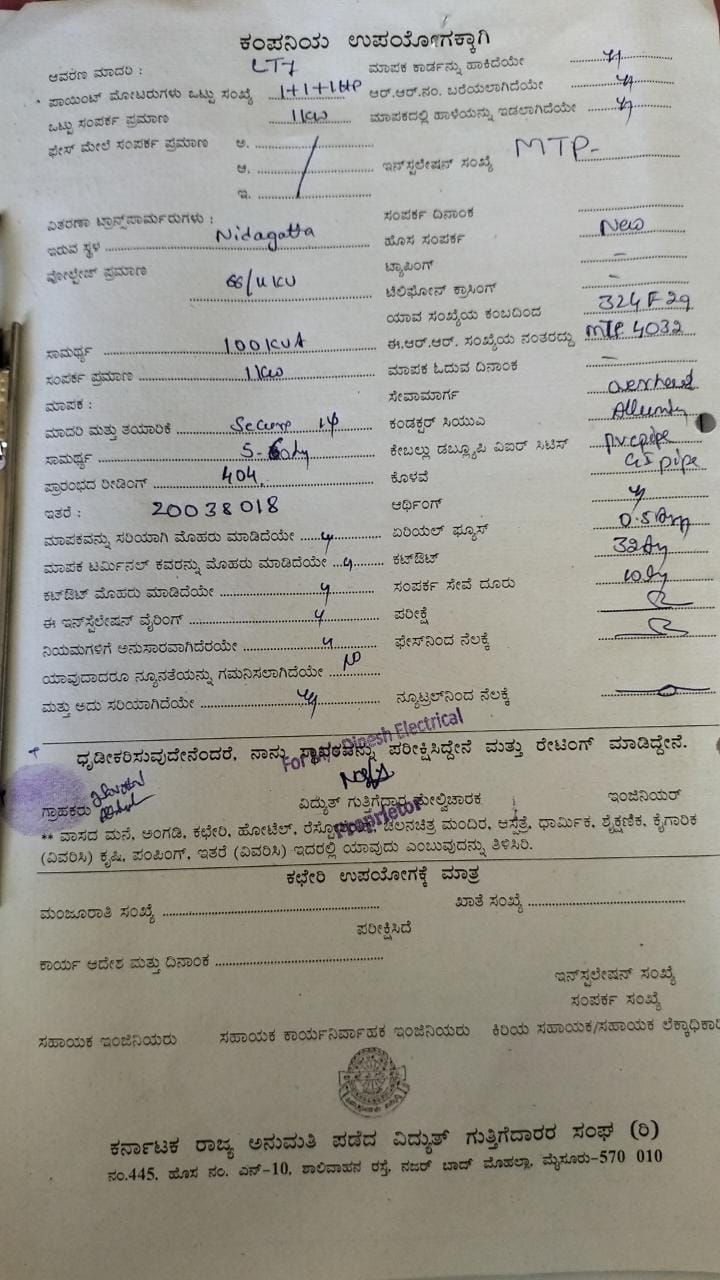 ಕಂಪನಿಯ ಉಪಯೋಗಕ್ಕಾಗಿ
ಆವರಣ ಮಾದರಿ : LT7 ಮಾಪಕ ಕಾರ್ಡನ್ನು ಹಾಕಿದೆಯೇ
ಪಾಯಿಂಟ್ ಮೋಟರುಗಳು ಒಟ್ಟು ಸಂಖ್ಯೆ 1+1+1HP ಆರ್.ಆರ್.ನಂ. ಬರೆಯಲಾಗಿದೆಯೇ
ಒಟ್ಟು ಸಂಪರ್ಕ ಪ್ರಮಾಣ 1KW ಮಾಪಕದಲ್ಲಿ ಹಾಳೆಯನ್ನು ಇಡಲಾಗಿದೆಯೇ
ಫೇಸ್ ಮೇಲೆ ಸಂಪರ್ಕ ಪ್ರಮಾಣ ಅ.
ಆ. ಇನ್‌ಸ್ಟಲೇಷನ್ ಸಂಖ್ಯೆ MTP-
ಇ.
ವಿತರಣಾ ಟ್ರಾನ್ಸ್‌ಫಾರ್ಮರುಗಳು : ಸಂಪರ್ಕ ದಿನಾಂಕ
ಇರುವ ಸ್ಥಳ Nidagatta ಹೊಸ ಸಂಪರ್ಕ New
ವೋಲ್ಟೇಜ್ ಪ್ರಮಾಣ 66/11KV ಟ್ಯಾಪಿಂಗ್ -
ಟೆಲಿಫೋನ್ ಕ್ರಾಸಿಂಗ್ -
ಯಾವ ಸಂಖ್ಯೆಯ ಕಂಬದಿಂದ 324F29
ಸಾಮರ್ಥ್ಯ 100KVA ಈ.ಆರ್.ಆರ್. ಸಂಖ್ಯೆಯ ನಂತರದ್ದು MTP 4032
ಸಂಪರ್ಕ ಪ್ರಮಾಣ 1KW ಮಾಪಕ ಓದುವ ದಿನಾಂಕ -
ಮಾಪಕ : ಸೇವಾಮಾರ್ಗ overhead
ಮಾದರಿ ಮತ್ತು ತಯಾರಿಕೆ Secure 1φ ಕಂಡಕ್ಟರ್ ಸಿಯುಎ
ಸಾಮರ್ಥ್ಯ ಕೇಬಲ್ಲು ಡಬ್ಲ್ಯೂಪಿ ವಿಐರ್ ಸಿಟಿಸ್ pvcpipe
ಪ್ರಾರಂಭದ ರೀಡಿಂಗ್ 404 ಕೊಳವೆ GI pipe
ಇತರೆ : 20038018 ಆರ್ಥಿಂಗ್
ಮಾಪಕವನ್ನು ಸರಿಯಾಗಿ ಮೊಹರು ಮಾಡಿದೆಯೇ ಏರಿಯಲ್ ಫ್ಯೂಸ್
ಮಾಪಕ ಟರ್ಮಿನಲ್ ಕವರನ್ನು ಮೊಹರು ಮಾಡಿದೆಯೇ ಕಟ್‌ಔಟ್
ಕಟ್‌ಔಟ್ ಮೊಹರು ಮಾಡಿದೆಯೇ ಸಂಪರ್ಕ ಸೇವೆ ದೂರು
ಈ ಇನ್‌ಸ್ಟಲೇಷನ್ ವೈರಿಂಗ್ ಪರೀಕ್ಷೆ
ನಿಯಮಗಳಿಗೆ ಅನುಸಾರವಾಗಿದೆರಯೇ ಫೇಸ್‌ನಿಂದ ನೆಲಕ್ಕೆ
ಯಾವುದಾದರೂ ನ್ಯೂನತೆಯನ್ನು ಗಮನಿಸಲಾಗಿದೆಯೇ NO
ಮತ್ತು ಅದು ಸರಿಯಾಗಿದೆಯೇ ನ್ಯೂಟ್ರಲ್‌ನಿಂದ ನೆಲಕ್ಕೆ
ಧೃಡೀಕರಿಸುವುದೇನೆಂದರೆ, ನಾನು ಸ್ಥಾವರವನ್ನು ಪರೀಕ್ಷಿಸಿದ್ದೇನೆ ಮತ್ತು ರೇಟಿಂಗ್ ಮಾಡಿದ್ದೇನೆ.
Dinesh Electrical
ಗ್ರಾಹಕರು ವಿದ್ಯುತ್ ಗುತ್ತಿಗೆದಾರ ಮೇಲ್ವಿಚಾರಕ ಇಂಜಿನಿಯರ್
Proprietor
** ವಾಸದ ಮನೆ, ಅಂಗಡಿ, ಕಛೇರಿ, ಹೋಟೆಲ್, ಚಲನಚಿತ್ರ ಮಂದಿರ, ಆಸ್ಪತ್ರೆ, ಧಾರ್ಮಿಕ, ಶೈಕ್ಷಣಿಕ, ಕೈಗಾರಿಕ
(ವಿವರಿಸಿ) ಕೃಷಿ, ಪಂಪಿಂಗ್, ಇತರೆ (ವಿವರಿಸಿ) ಇದರಲ್ಲಿ ಯಾವುದು ಎಂಬುವುದನ್ನು ತಿಳಿಸಿರಿ.
ಕಛೇರಿ ಉಪಯೋಗಕ್ಕೆ ಮಾತ್ರ
ಮಂಜೂರಾತಿ ಸಂಖ್ಯೆ ಖಾತೆ ಸಂಖ್ಯೆ
ಪರೀಕ್ಷಿಸಿದೆ
ಕಾರ್ಯ ಆದೇಶ ಮತ್ತು ದಿನಾಂಕ
ಇನ್‌ಸ್ಪಲೇಷನ್ ಸಂಖ್ಯೆ
ಸಂಪರ್ಕ ಸಂಖ್ಯೆ
ಸಹಾಯಕ ಇಂಜಿನಿಯರು ಸಹಾಯಕ ಕಾರ್ಯನಿರ್ವಾಹಕ ಇಂಜಿನಿಯರು ಕಿರಿಯ ಸಹಾಯಕ/ಸಹಾಯಕ ಲೆಕ್ಕಾಧಿಕಾರಿ
ಕರ್ನಾಟಕ ರಾಜ್ಯ ಅನುಮತಿ ಪಡೆದ ವಿದ್ಯುತ್ ಗುತ್ತಿಗೆದಾರರ ಸಂಘ (ರಿ)
ನಂ.445, ಹೊಸ ನಂ. ಎನ್-10, ಶಾಲಿವಾಹನ ರಸ್ತೆ, ನಜರ್ ಬಾದ್ ಮೊಹಲ್ಲಾ, ಮೈಸೂರು-570 010